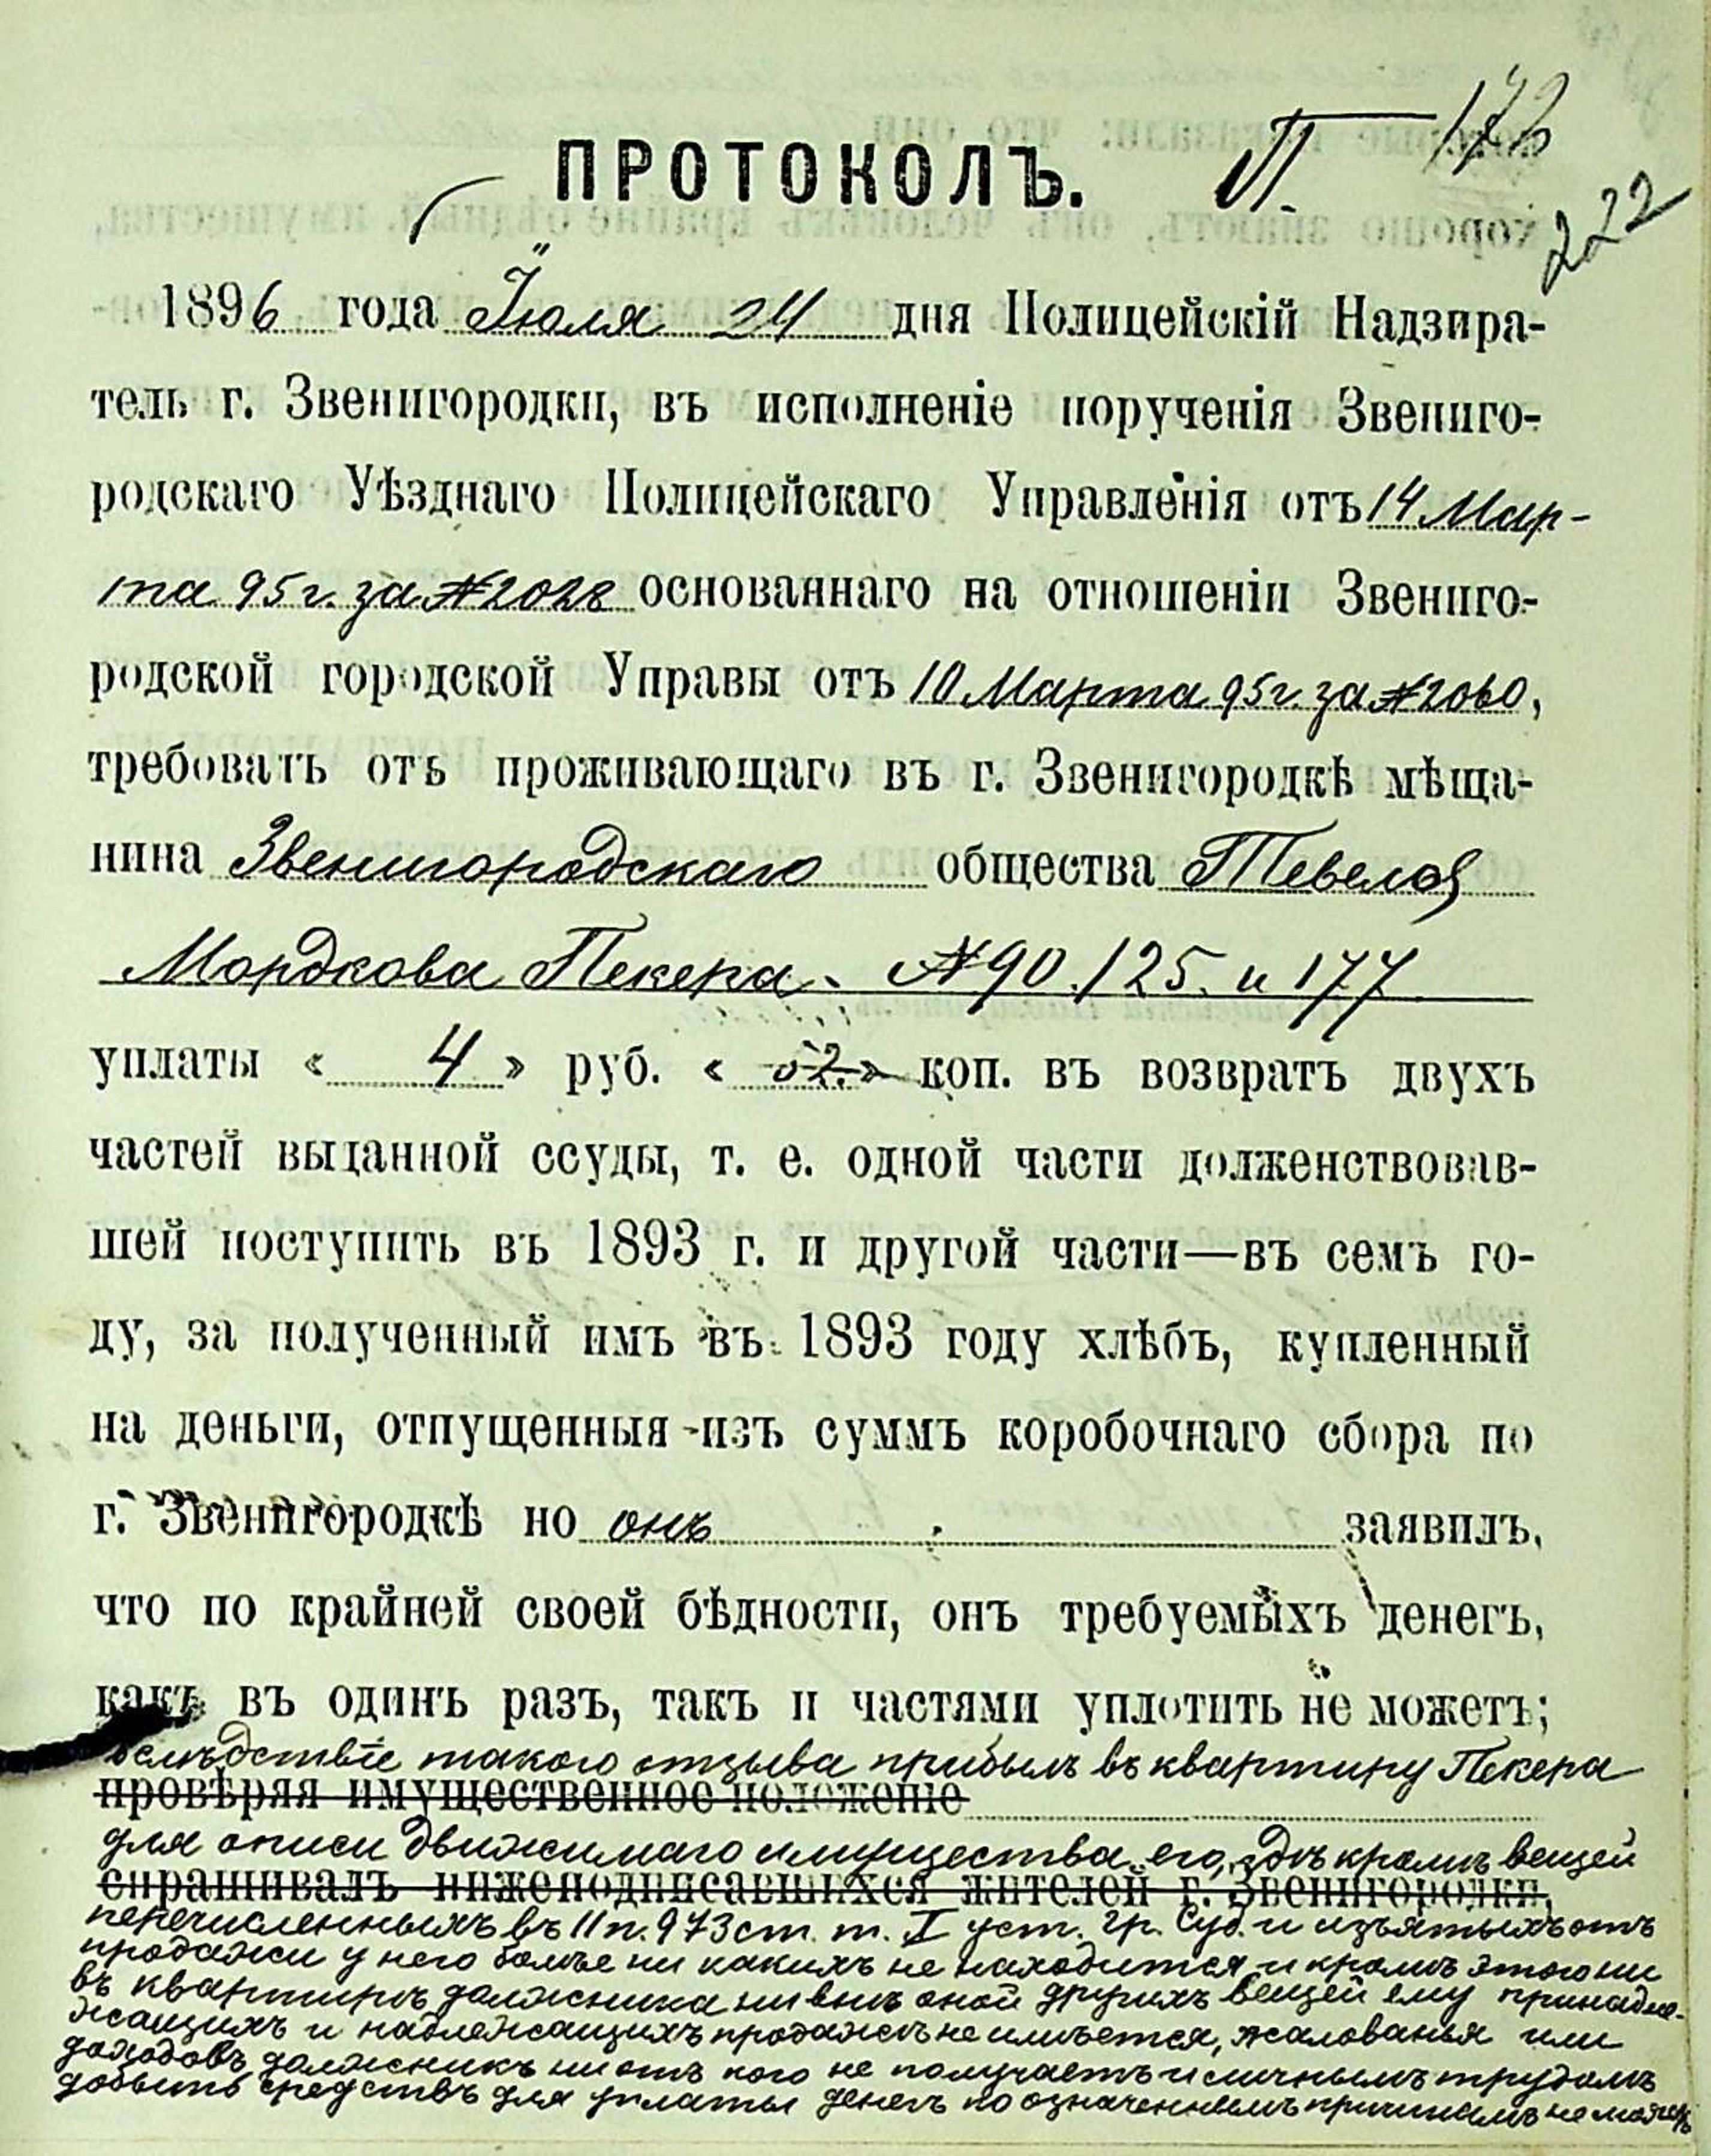 ПРОТОКОЛЪ.
П.
222
1896 года Іюля 24 дня Полицейскій Надзира-
тель г. Звенигородки, въ исполненіе порученія Звениго-
родскаго Уѣзднаго Полицейскаго Управленія отъ 14 Мар-
та 95 г. за № 2028 основаннаго на отношеніи Звениго-
родской городской Управы отъ 10 Марта 95 г. за № 2060,
требовать отъ проживающаго въ г. Звенигородкѣ мѣща-
нина Звенигородскаго общества Тевеля
Мордкова Пекера. № 90. 125. и 177
уплаты « 4 » руб. « 52. » коп. въ возвратъ двухъ
частей выданной ссуды, т. е. одной части долженствовав-
шей поступить въ 1893 г. и другой части—въ семъ го-
ду, за полученный имъ въ 1893 году хлѣбъ, купленный
на деньги, отпущенныя изъ суммъ коробочнаго сбора по
г. Звенигородкѣ но онъ заявилъ,
что по крайней своей бѣдности, онъ требуемыхъ денегъ,
какъ въ одинъ разъ, такъ и частями уплотить не можетъ;
вслѣдствіе такого отзыва прибылъ въ квартиру Пекера
провѣряя имущественное положеніе
для описи движимаго имущества его, гдѣ кромѣ вещей
спрашивалъ нижеподписавшихся жителей г. Звенигородки,
перечисленныхъ въ 11 п. 973 ст. т. I уст. гр. Суд. и изъятыхъ отъ
продажи у него болѣе ни какихъ не находится и кромѣ этого ни
въ квартирѣ должника ни внѣ оной другихъ вещей ему принадле-
жащихъ и надлежащихъ продажѣ не имѣется, жалованья или
доходовъ должникъ ни отъ кого не получаетъ и личнымъ трудомъ
добыть средствъ для уплаты денегъ по означеннымъ причинамъ не можетъ